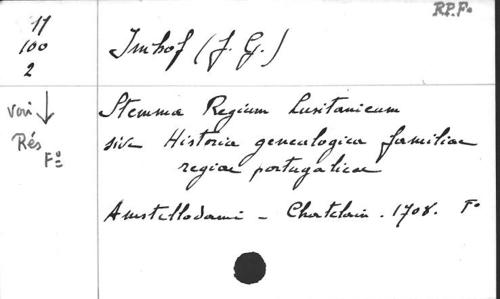 R.P.Fo
11
100
2
Imhof (J. G.)
voir ↓
Rés
Fo
Stemma Regium Lusitanicum
sive Historia genealogica familiae
regiae portugalicae
Amstellodami - Chatelain. 1708. Fo